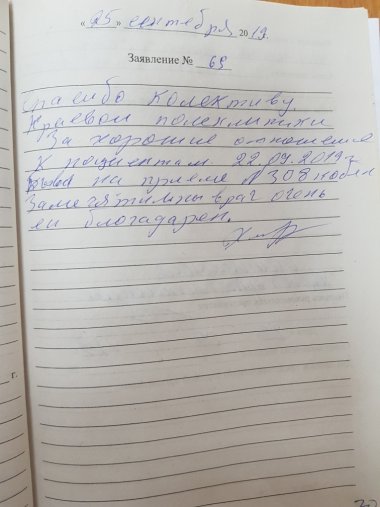 « 25 » сентября 2019.
Заявление № 69
Спасибо колективу
Краевой поликлиники
За хорошие отношение
К пациентам 22.09.2019 г
на приеме № 308 кабин
Замечятилны врач очень
ей благадарен.
г.